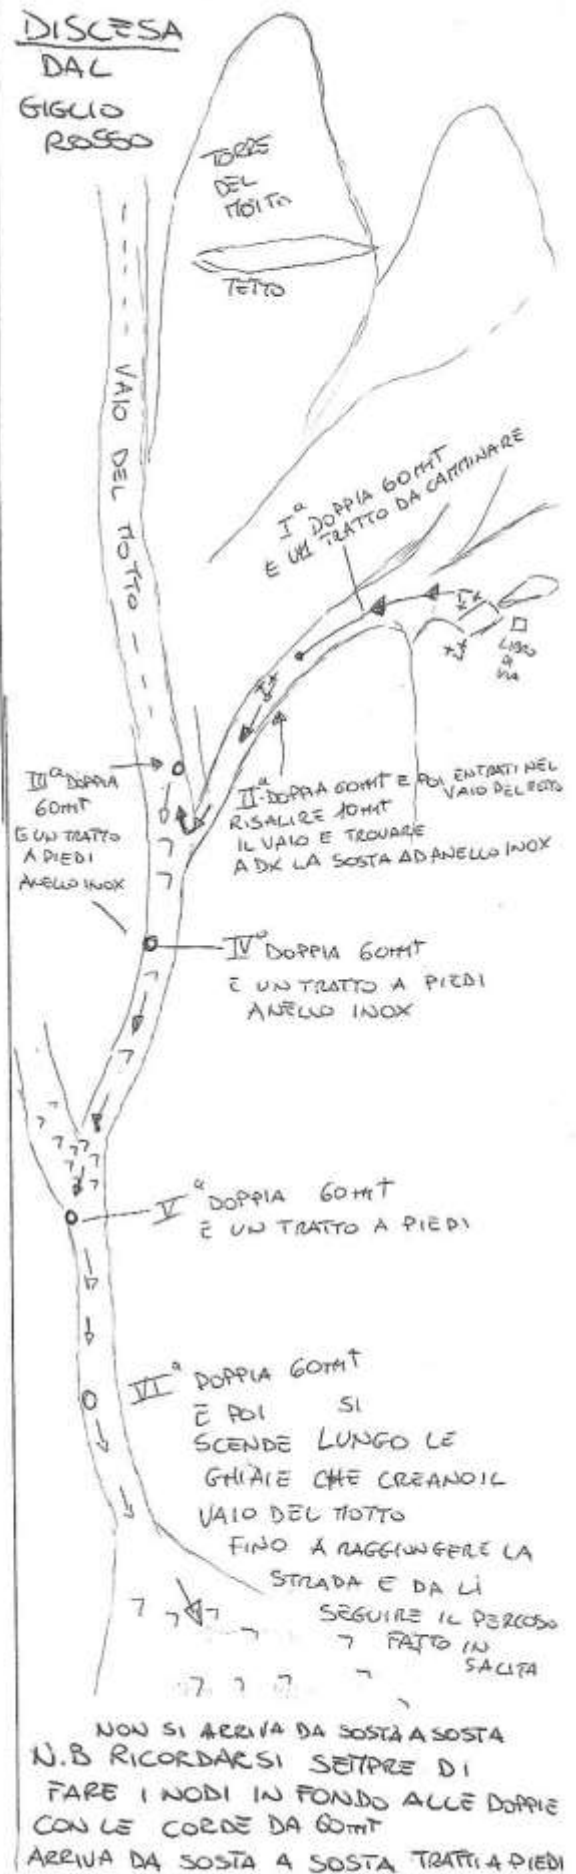 DISCESA
DAL
GIGLIO
ROSSO
TORRE
DEL
MOTTO
TETTO
VAIO DEL MOTTO
Iª DOPPIA 60MT
E UN TRATTO DA CAMMINARE
LIBRO
DI
VIA
IIIª DOPPIA
60MT
E UN TRATTO
A PIEDI
ANELLO INOX
IIª DOPPIA 60MT E POI ENTRATI NEL
VAIO DEL MOTTO
RISALIRE 10MT
IL VAIO E TROVARE
A DX LA SOSTA AD ANELLO INOX
IVª DOPPIA 60MT
E UN TRATTO A PIEDI
ANELLO INOX
Vª DOPPIA 60MT
E UN TRATTO A PIEDI
VIª DOPPIA 60MT
E POI SI
SCENDE LUNGO LE
GHIAIE CHE CREANO IL
VAIO DEL MOTTO
FINO A RAGGIUNGERE LA
STRADA E DA LÌ
SEGUIRE IL PERCOSO
FATTO IN
SALITA
NON SI ARRIVA DA SOSTA A SOSTA
N.B RICORDARSI SEMPRE DI
FARE I NODI IN FONDO ALLE DOPPIE
CON LE CORDE DA 60MT
ARRIVA DA SOSTA A SOSTA TRATTI A PIEDI